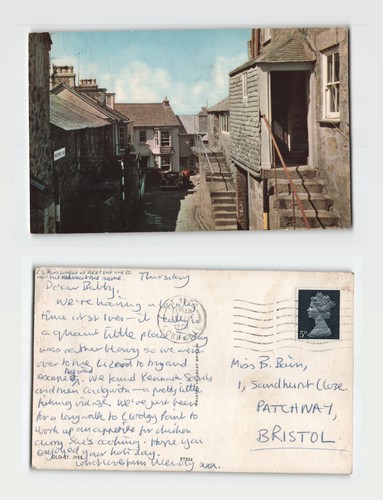 Thursday
Dear Bubby,
We're having a lovely
time
a quaint little place. Today
was rather blowy so we went
over to the Lizard to try and
escape it. We found Kennack Sands
and then Cadgwith - a pretty little
fishing village. We've just been
for a long walk to Clodgy Point to
work up an appetite for chicken
curry Sue's cooking. Hope you
enjoyed your holiday.
OLD ST. IVES
love from Wendy xxx.
5D
Miss B. Bain,
1, Sandhurst Close
PATCHWAY,
BRISTOL